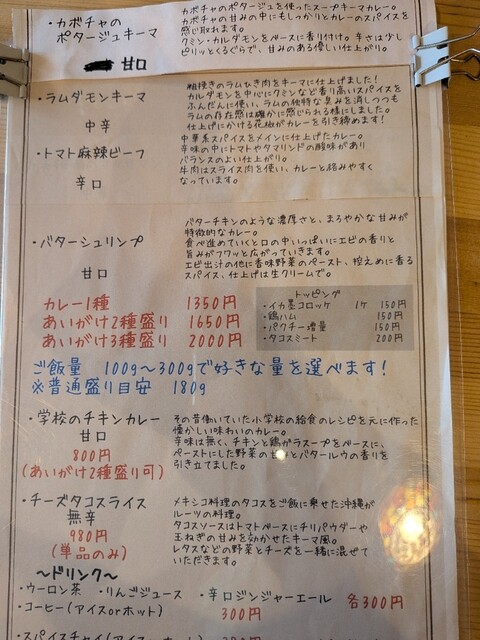 ・カボチャの
ポタージュキーマ
甘口
カボチャのポタージュを使ったスープキーマカレー。
カボチャの甘みの中にもしっかりとカレーのスパイスを
感じ取れます。
クミン・カルダモンをベースに香り付け。辛さは少し
ピリッとくるぐらいで、甘みのある優しい仕上がり。
・ラムダモンキーマ
中辛
粗挽きのラムひき肉をキーマに仕上げました！
カルダモンを中心にクミンなど香り高いスパイスを
ふんだんに使い、ラムの独特な臭みを消しつつも
ラムの存在感は確かに感じられる様にしました。
仕上げにかける花椒がカレーを引き締めます！
・トマト麻辣ビーフ
辛口
中華系スパイスをメインに仕上げたカレー。
辛味の中にトマトやタマリンドの酸味があり
バランスのよい仕上がり。
牛肉はスライス肉を使い、カレーと絡みやすく
なっています。
・バターシュリンプ
甘口
バターチキンのような濃厚さと、まろやかな甘みが
特徴的なカレー。
食べ進めていくと口の中いっぱいにエビの香りと
旨みがフワッと広がっていきます。
エビ出汁の他に香味野菜のペースト、控えめに香る
スパイス、仕上げは生クリームで。
カレー1種 1350円
あいがけ2種盛り 1650円
あいがけ3種盛り 2000円
トッピング
・イカ墨コロッケ 1ケ 150円
・鶏ハム 150円
・パクチー増量 150円
・タコスミート 200円
ご飯量 100g～300gで好きな量を選べます！
※普通盛り目安 180g
・学校のチキンカレー
甘口
800円
(あいがけ2種盛り可)
その昔働いていた小学校の給食のレシピを元に作った
懐かしい味わいのカレー。
辛味は無く、チキンと鶏がらスープをベースに、
ペーストにした野菜の甘みとバタールウの香りを
引き立てました。
・チーズタコスライス
無辛
980円
(単品のみ)
メキシコ料理のタコスをご飯に乗せた沖縄が
ルーツの料理。
タコスソースはトマトベースにチリパウダーや
玉ねぎの甘みを効かせたキーマ風。
レタスなどの野菜とチーズを一緒に混ぜて
いただきます。
～ドリンク～
・ウーロン茶 ・りんごジュース ・辛口ジンジャーエール 各300円
・コーヒー(アイスorホット) 300円
・スパイスチャイ(アイスorホット)